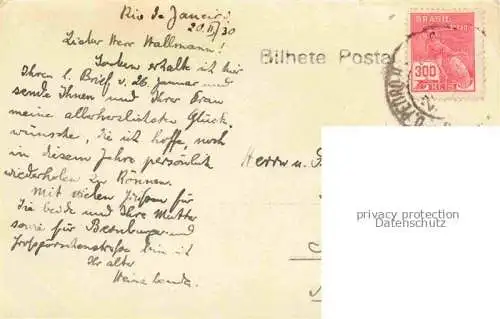 Rio de Janeiro
20.II/30
Lieber Herr Wallmann!
Soeben erhalte ich hier
Ihren l. Brief v. 26. Januar und
sende Ihnen und Ihrer Frau
meine allerherzlichsten Glück-
wünsche, die ich hoffe, noch
in diesem Jahre persönlich
wiederholen zu können.
Mit vielen Grüßen für
Sie beide und Ihre Mutter
sowie für Bernburger und
Großgörschenstraße bin ich
Ihr alter
Bilhete Postal
BRASIL
300
REIS
Herrn u.
privacy protection
Datenschutz